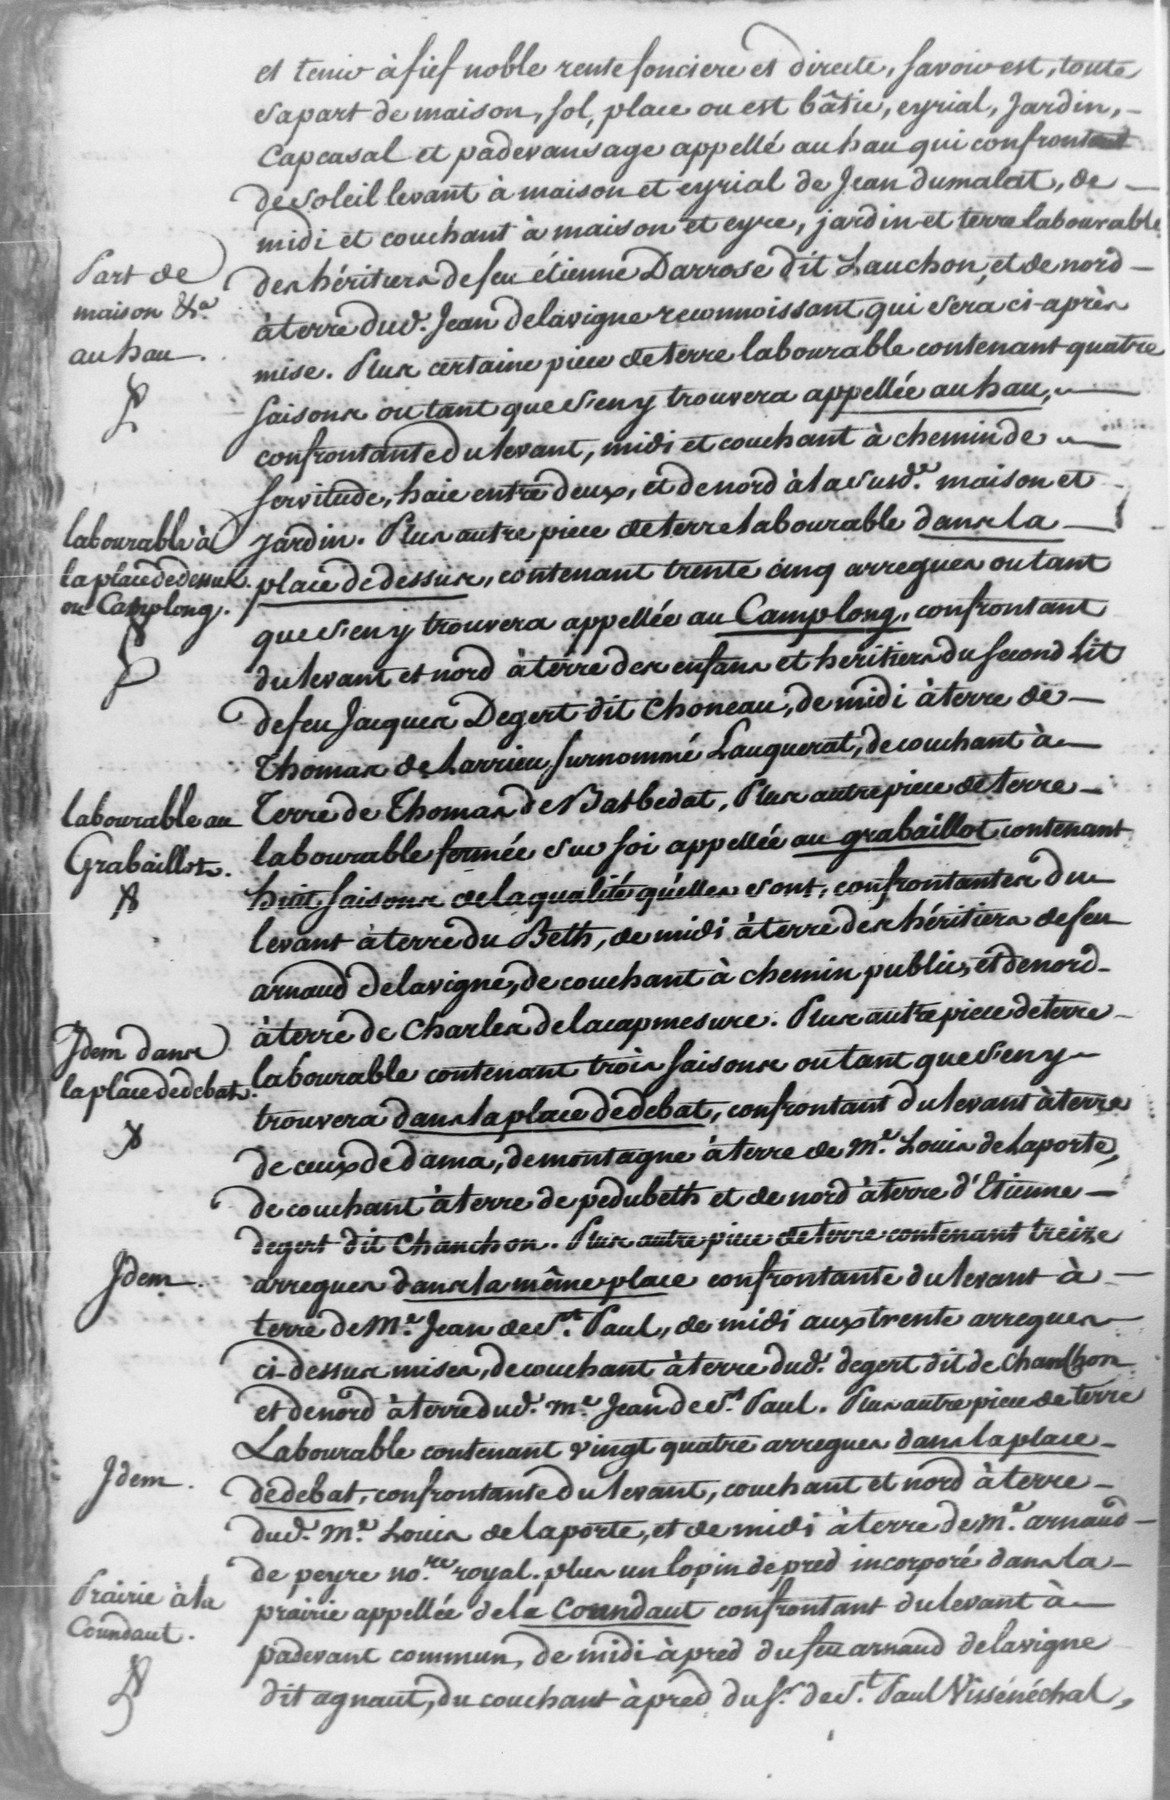 et tenir à fief noble rente fonciere et directe, savoir est, toute
sa part de maison, sol, place ou est bâtie, eyrial, Jardin, -
Capcasal et padevansage appellé au hau qui confrontent
de soleil levant à maison et eyrial de Jean dumalat, de -
midi et couchant à maison et eyre, jardin et terre labourable
Part de
maison &.a
au hau.
des héritiers de feu étienne Darrose dit Lauchon, et de nord -
à terre dud. Jean delavigne reconnoissant qui sera ci-après
mise. Plus certaine piece de terre labourable contenant quatre
saisons ou tant que s'en y trouvera appellée au hau, -
confrontante du levant, midi et couchant à chemin de -
servitude, haie entre deux, et de nord à la susd.e maison et
labourable à
la place de dessus
ou Camplong.
jardin. Plus autre piece de terre labourable dans la -
place de dessus, contenant trente cinq arregues ou tant
que s'en y trouvera appellée au Camplong, confrontant
du levant et nord à terre des enfans et heritiers du second Lit
de feu Jacques Degert dit Choneau, de midi à terre de -
Thomas de Larrieu surnommé Lauguerat, de couchant à -
labourable au
Grabaillot.
Terre de Thomas de Batbedat, Plus autre piece de terre -
labourable fermée sur soi appellée au grabaillot contenant
huit saisons de la qualité qu'elles sont, confrontantes du -
levant à terre du Beth, de midi à terre des héritiers de feu
arnaud delavigne, de couchant à chemin public, et de nord -
à terre de Charles de lacapmesure. Plus autre piece de terre -
Idem dans
la place de debat.
labourable contenant trois saisons ou tant que s'en y -
trouvera dans la place de debat, confrontant du levant à terre
de ceux de dama, de montagne à terre de M.e Louis de Laporte,
de couchant à terre de pedubeth et de nord à terre d'Etienne -
degert dit Chanchon. Plus autre piece de terre contenant treize
Idem.
arregues dans la même place confrontante du levant à -
terre de M.e Jean de S.t Paul, de midi aux trente arregues -
ci-dessus mises, de couchant à terre dud. degert dit de Chanchon
et de nord à terre dud. M.e Jean de S.t Paul. Plus autre piece de terre
Labourable contenant vingt quatre arregues dans la place -
Idem.
de debat, confrontante du levant, couchant et nord à terre -
dud. M.e Louis de laporte, et de midi à terre de M.e arnaud -
de peyre no.re royal. plus un lopin de pred incorporé dans la -
Prairie à la
Coundaut.
prairie appellée de la Coundaut confrontant du levant à -
padevant commun, de midi à pred du feu arnaud delavigne
dit agnaut, du couchant à pred du s.r de S.t Paul Vissénéchal,